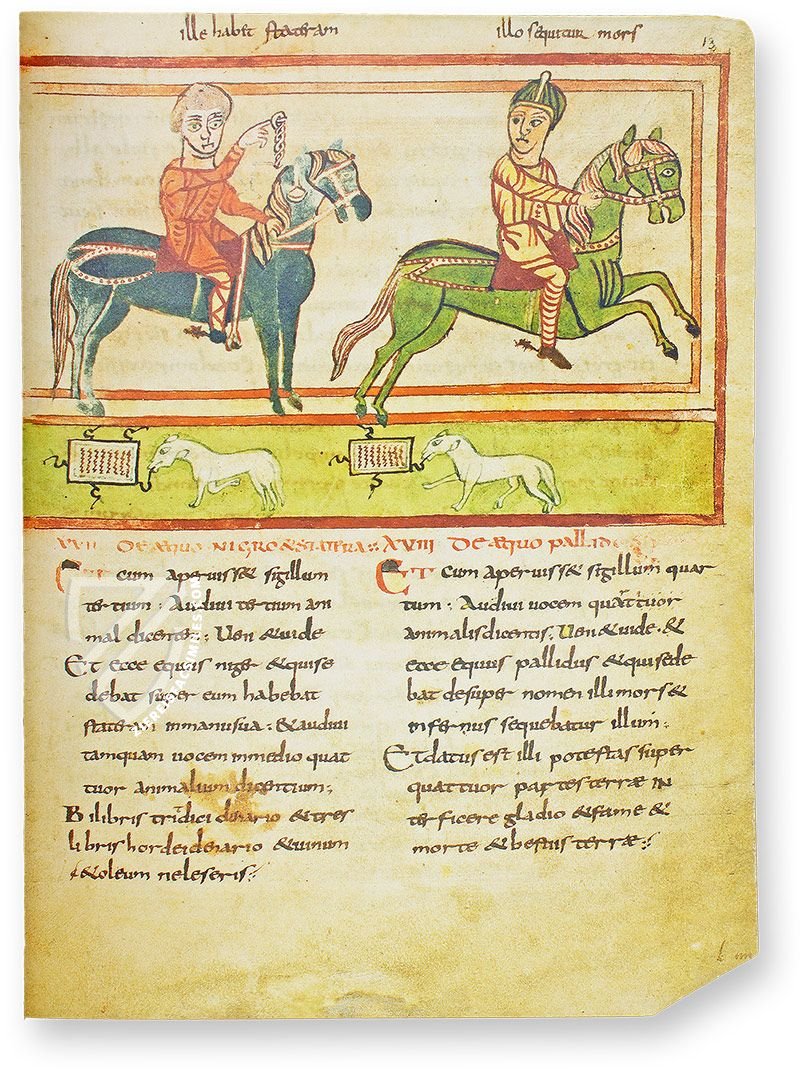 ille habet stateram
illo sequitur mors
13
XVII DE AEQUO NIGRO & STATERA :
Et cum aperuiss& sigillum
tertium : Audiui tertium ani
mal dicentem : Ueni & uide
Et ecce equus niger & qui se
debat super eum habebat
stateram in manu sua : & audiui
tamquam uocem in medio quat
tuor animalium dicentium ;
Bilibris tritici denario & tres
libris hordei denario & uinum
& oleum ne leseris :
XVIII DE AEQUO PALLIDO
Et cum aperuiss& sigillum quar
tum : Audiui uocem quarti
animalis dicentis . Ueni & uide . &
ecce equus pallidus & qui sede
bat desuper nomen illi mors &
infernus sequebatur illum :
Et datus est illi potestas super
quattuor partes terrae in
terficere gladio & fame &
morte & bestiis terrae :